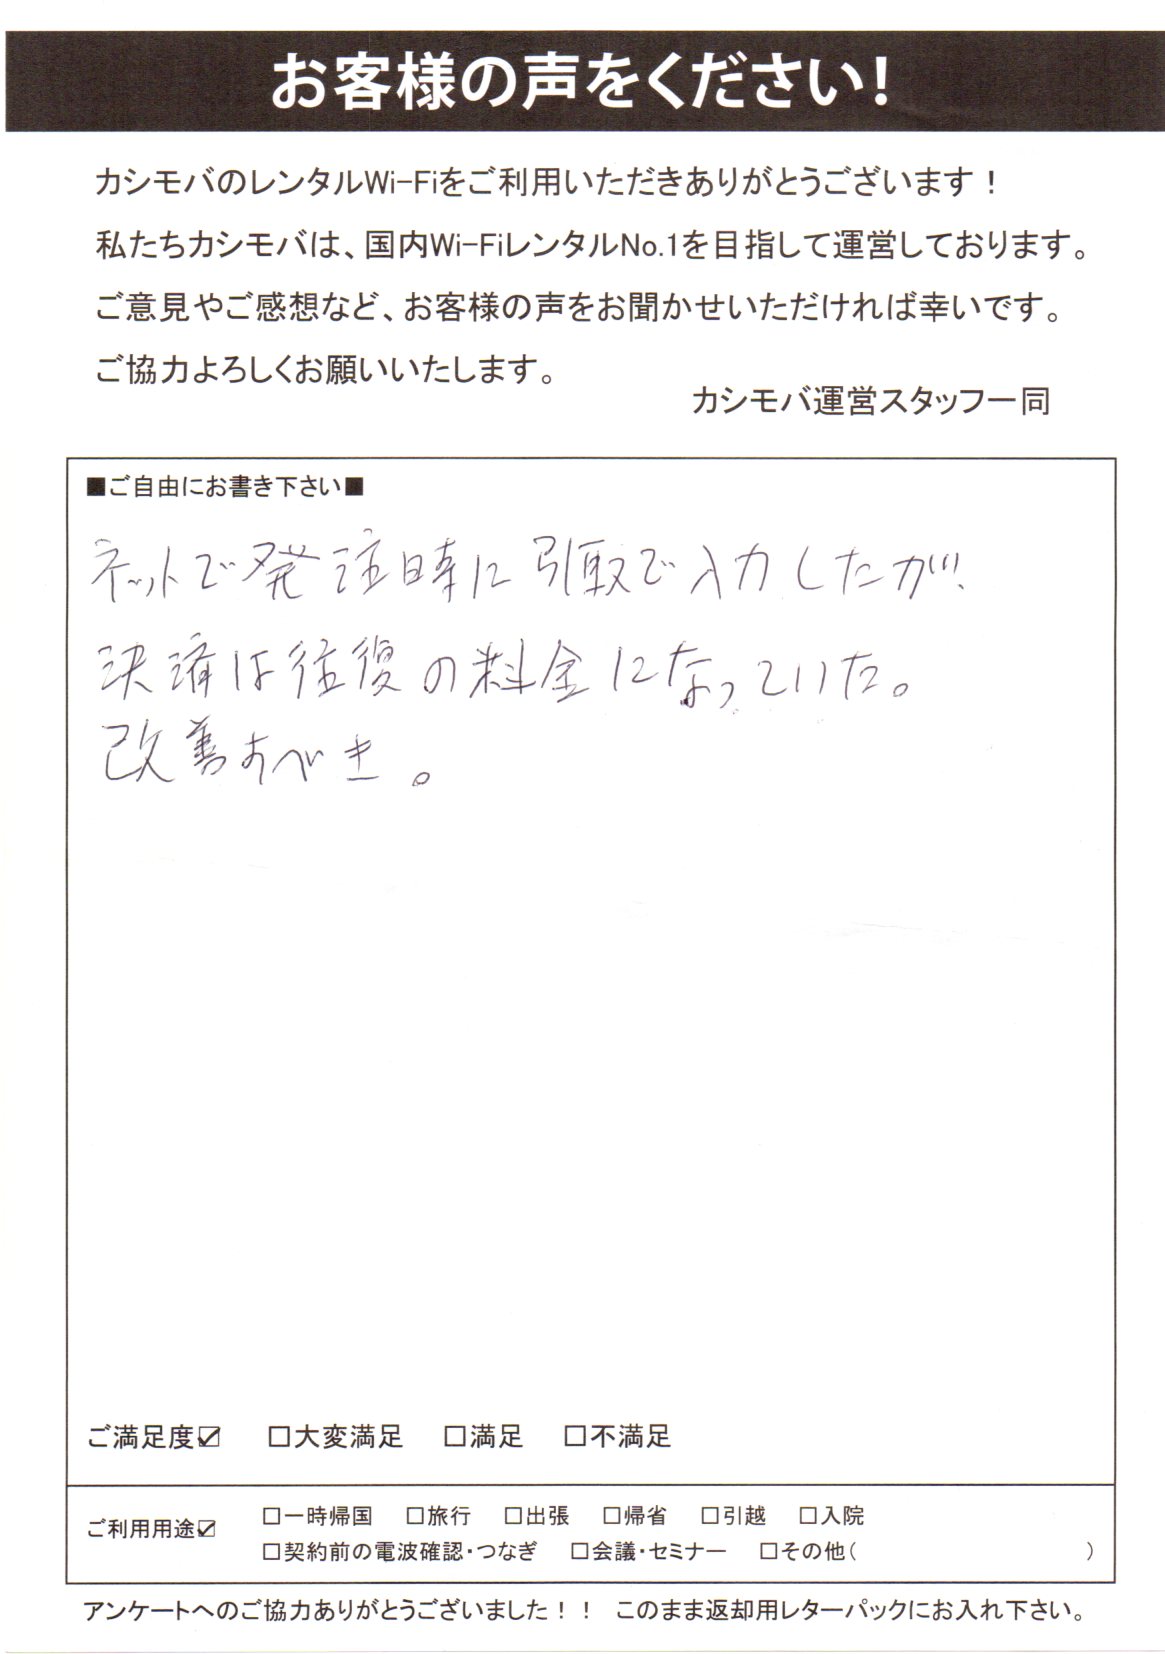 お客様の声をください!
カシモバのレンタルWi-Fiをご利用いただきありがとうございます！
私たちカシモバは、国内Wi-FiレンタルNo.1を目指して運営しております。
ご意見やご感想など、お客様の声をお聞かせいただければ幸いです。
ご協力よろしくお願いいたします。
カシモバ運営スタッフ一同
■ご自由にお書き下さい■
ネットで発注時に引取で入力したが、
決済は往復の料金になっていた。
改善すべき。
ご満足度☑ □大変満足 □満足 □不満足
ご利用用途☑ □一時帰国 □旅行 □出張 □帰省 □引越 □入院
□契約前の電波確認・つなぎ □会議・セミナー □その他（ ）
アンケートへのご協力ありがとうございました！！ このまま返却用レターパックにお入れ下さい。